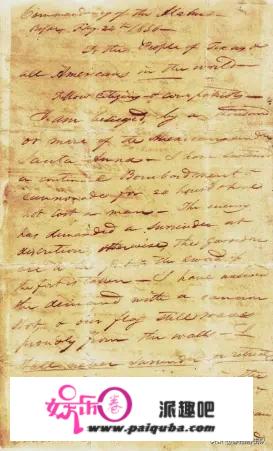 Commandancy of the Alamo—
Bejar, Fby. 24th 1836—
To the People of Texas &
all Americans in the world—
Fellow citizens & compatriots—
I am besieged, by a thousand
or more of the Mexicans under
Santa Anna— I have sustained
a continual Bombardment &
cannonade for 24 hours & have
not lost a man— The enemy
has demanded a surrender at
discretion, otherwise, the garrison
are to be put to the sword, if
the fort is taken— I have answered
the demand with a cannon
shot, & our flag still waves
proudly from the walls— I
shall never surrender or retreat
the
派趣吧
www.paiquba.com